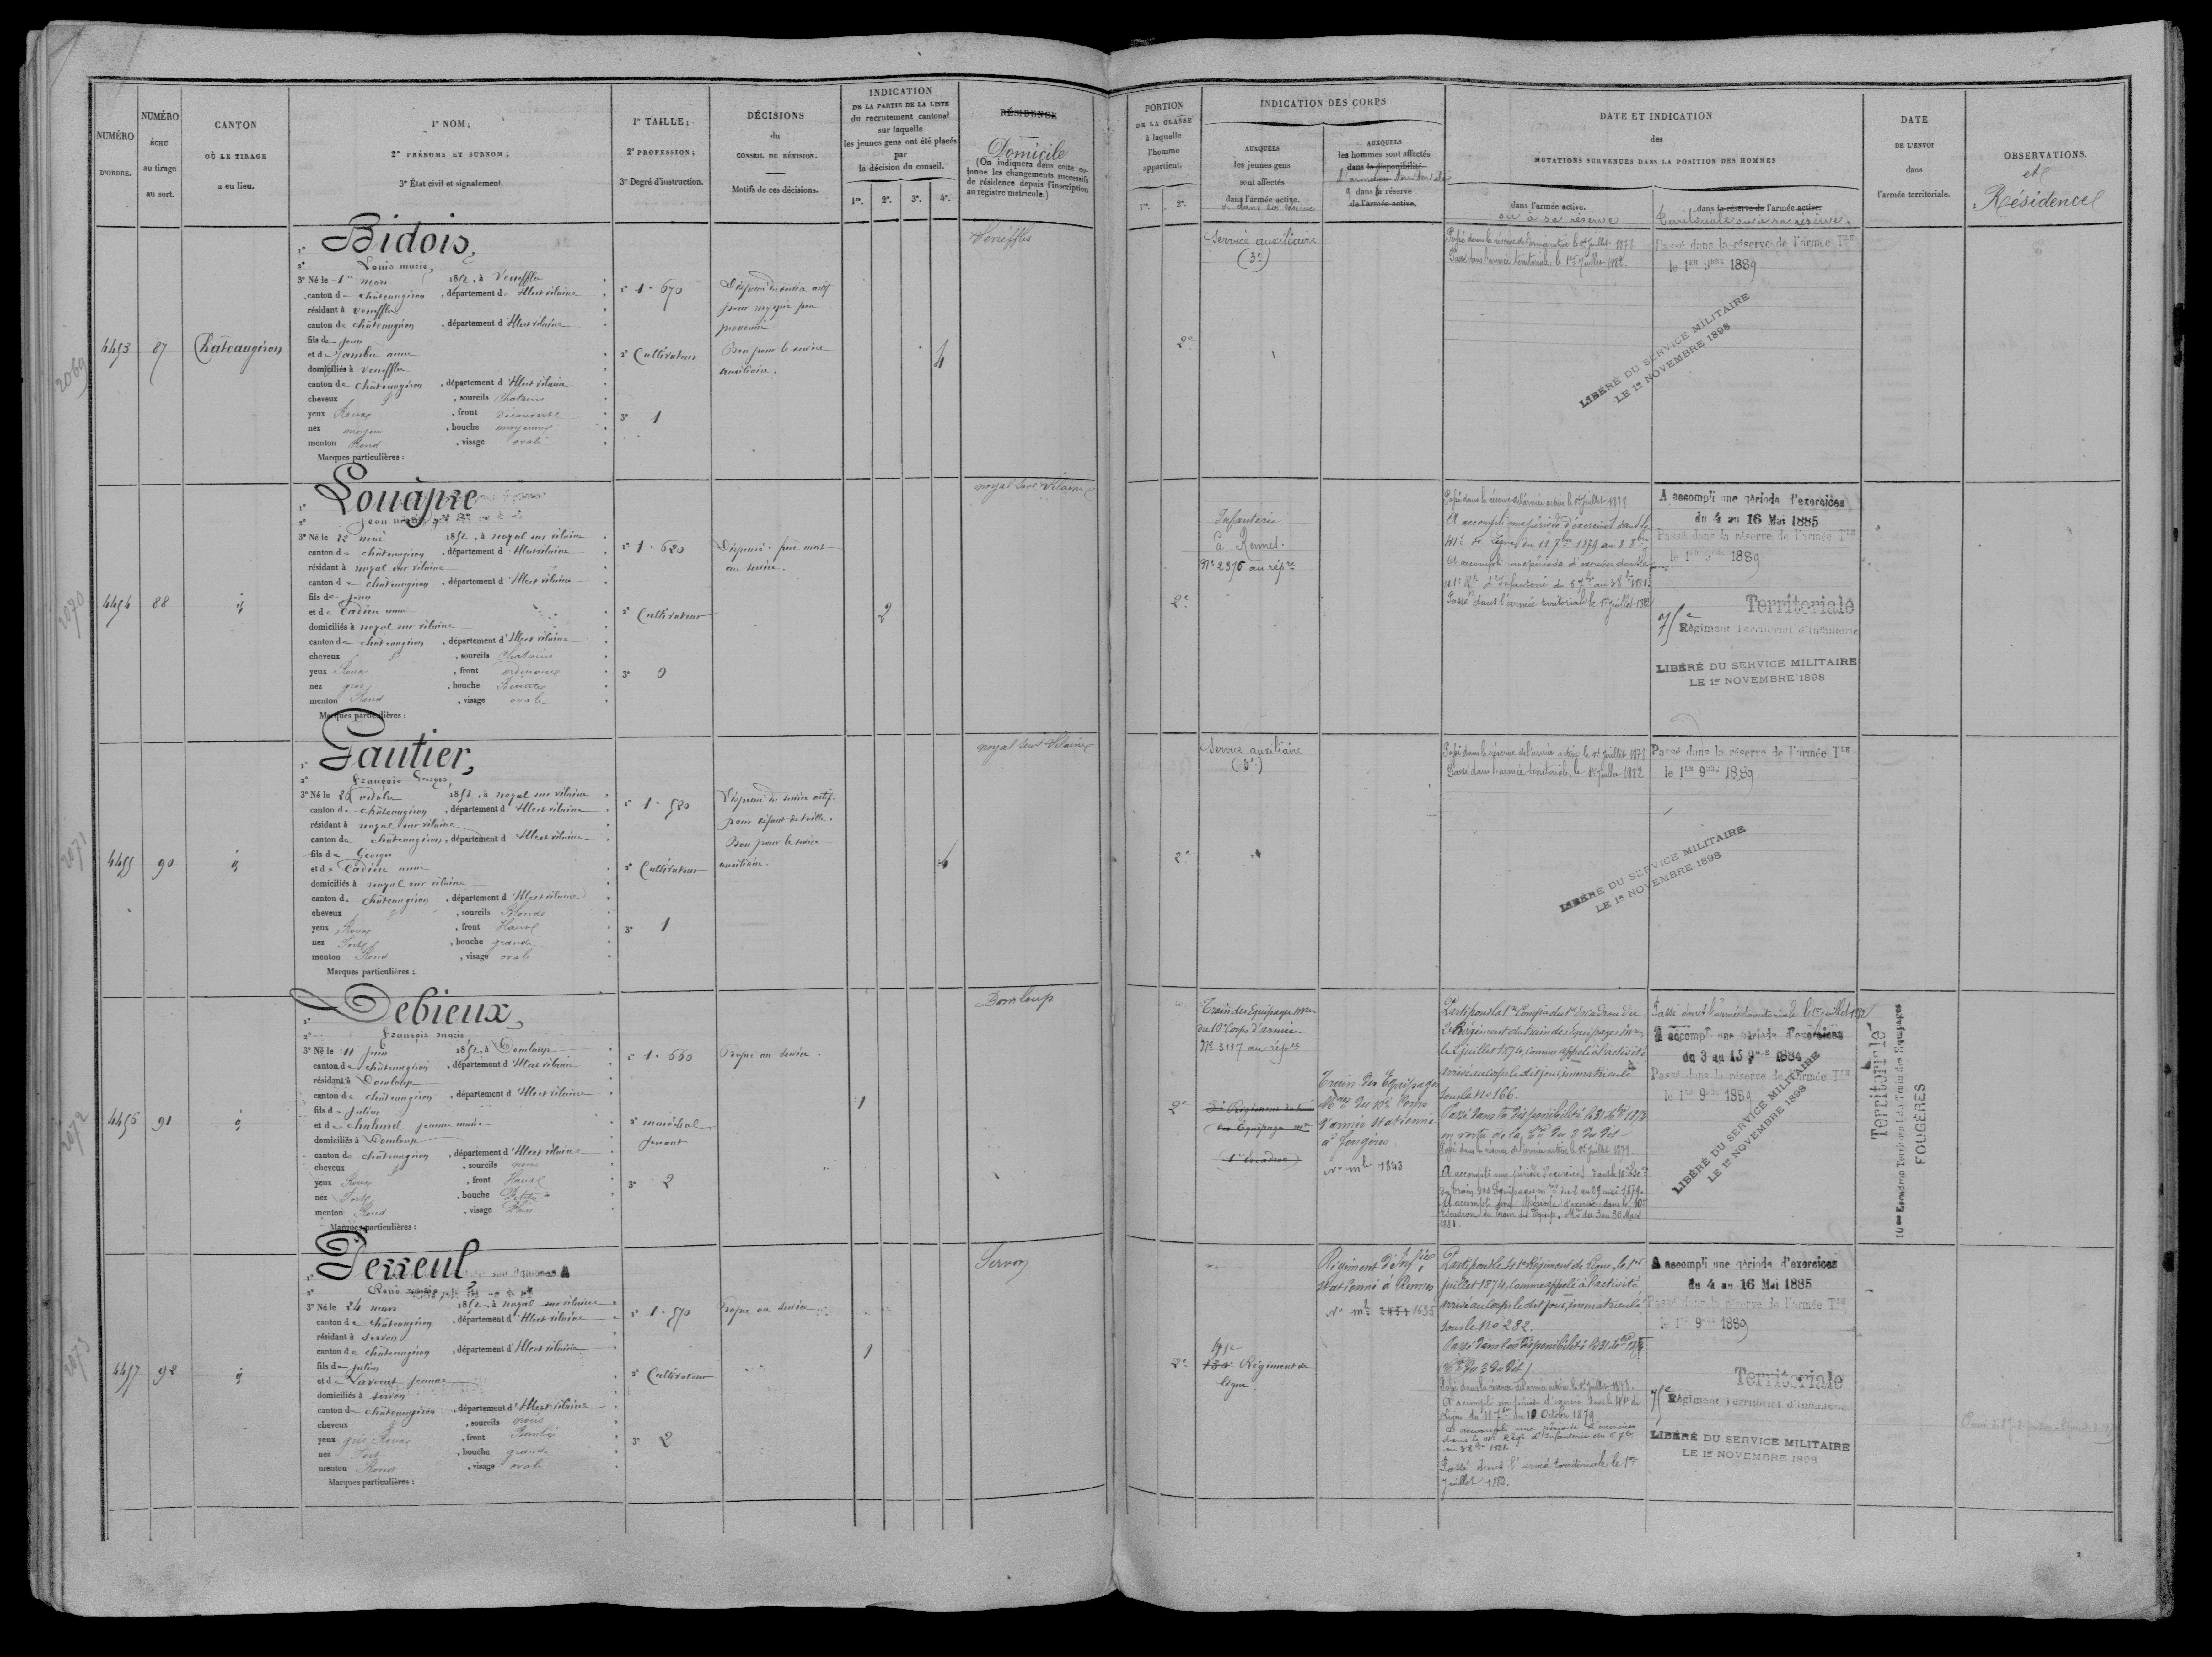 NUMÉRO
D'ORDRE.
NUMÉRO
ÉCHU
au tirage
au sort.
CANTON
OÙ LE TIRAGE
a eu lieu.
1° NOM;
2° PRÉNOMS ET SURNOM;
3° État civil et signalement.
1° TAILLE;
2° PROFESSION;
3° Degré d'instruction.
DÉCISIONS
du
CONSEIL DE RÉVISION.
Motifs de ces décisions.
INDICATION
DE LA PARTIE DE LA LISTE
du recrutement cantonal
sur laquelle
les jeunes gens ont été placés
par
la décision du conseil.
1re. 2e. 3e. 4e.
RÉSIDENCE
Domicile
(On indiquera dans cette co-
lonne les changements successifs
de résidence depuis l'inscription
au registre matricule.)
PORTION
DE LA CLASSE
à laquelle
l'homme
appartient.
1re. 2e.
INDICATION DES CORPS
AUXQUELS
les jeunes gens
sont affectés
dans l'armée active.
ou dans sa réserve
AUXQUELS
les hommes sont affectés
dans la disponibilité
l'armée territoriale
dans la réserve
de l'armée active.
DATE ET INDICATION
des
MUTATIONS SURVENUES DANS LA POSITION DES HOMMES
dans l'armée active.
ou à sa réserve
dans la réserve de l'armée active.
territoriale ou à sa réserve.
DATE
DE L'ENVOI
dans
l'armée territoriale.
OBSERVATIONS.
et
Résidence
2069
4453 87 Châteaugiron
1° Bidois,
2° Louis marie,
3° Né le 1er mars 1852, à Veneffles
canton de châteaugiron, département d'Ille et vilaine
résidant à Veneffles
canton de châteaugiron, département d'Ille et vilaine
fils de jean
et de Jambu anne
domiciliés à Veneffles
canton de châteaugiron, département d'Ille et vilaine
cheveux, sourcils Chatains
yeux Roux, front découvert
nez moyen, bouche moyenne
menton Rond, visage ovale
Marques particulières :
1° 1.670
2° Cultivateur
3° 1
Dispensé du service actif
pour myopie peu
prononcée.
Bon pour le service
auxiliaire.
4
Veneffles
2e
Service auxiliaire
(3e)
Passé dans la réserve de l'armée active le 1er juillet 1878
Passé dans l'armée territoriale, le 1er Juillet 1882.
Passé dans la réserve de l'armée Tle
le 1er 9bre 1889
LIBÉRÉ DU SERVICE MILITAIRE
LE 1er NOVEMBRE 1898
2070
4454 88 id
1° Louâpre
2° jean marie
3° Né le 22 mai 1852, à noyal sur vilaine
canton de châteaugiron, département d'Ille et vilaine
résidant à noyal sur vilaine
canton de châteaugiron, département d'Ille et vilaine
fils de jean
et de Cadieu anne
domiciliés à noyal sur vilaine
canton de châteaugiron, département d'Ille et vilaine
cheveux, sourcils Chatains
yeux Roux, front ordinaire
nez gros, bouche
menton Rond, visage ovale
Marques particulières :
1° 1.620
2° Cultivateur
3° 0
Dispensé. frère mort
au service.
2
noyal sur Vilaine
2e
Infanterie
à Rennes.
No 2376 au répre
Passé dans la réserve de l'armée active le 1er juillet 1878
A accompli une période d'exercices dans le
41e de ligne du 11 7bre 1879 au 8 8bre
A accompli une période d'exercices dans le
41e Rt d'Infanterie du 5 7bre au 3 8bre 1881.
Passé dans l'armée territoriale le 1er juillet 1882
A accompli une période d'exercices
du 4 au 16 Mai 1885
Passé dans la réserve de l'armée Tle
le 1er 9bre 1889
Territoriale
75e Régiment Territorial d'Infanterie
LIBÉRÉ DU SERVICE MILITAIRE
LE 1er NOVEMBRE 1898
2071
4455 90 id
1° Gautier,
2° François Georges,
3° Né le 26 octobre 1852, à noyal sur vilaine
canton de châteaugiron, département d'Ille et vilaine
résidant à noyal sur vilaine
canton de châteaugiron, département d'Ille et vilaine
fils de Georges
et de Cadieu anne
domiciliés à noyal sur vilaine
canton de châteaugiron, département d'Ille et vilaine
cheveux, sourcils Blonds
yeux Roux, front Haut
nez Fort, bouche grande
menton Rond, visage ovale
Marques particulières :
1° 1.520
2° Cultivateur
3° 1
Dispensé du service actif.
pour défaut de taille.
Bon pour le service
auxiliaire.
4
noyal sur Vilaine
2e
Service auxiliaire
(3e)
Passé dans la réserve de l'armée active le 1er juillet 1878
Passé dans l'armée territoriale, le 1er juillet 1882
Passé dans la réserve de l'armée Tle
le 1er 9bre 1889
LIBÉRÉ DU SERVICE MILITAIRE
LE 1er NOVEMBRE 1898
2072
4456 91 id
1° Debieux,
2° François marie
3° Né le 11 juin 1852, à Domloup
canton de châteaugiron, département d'Ille et vilaine
résidant à Domloup
canton de châteaugiron, département d'Ille et vilaine
fils de julien
et de chaturel jeanne marie
domiciliés à Domloup
canton de châteaugiron, département d'Ille et vilaine
cheveux, sourcils noirs
yeux Roux, front Haut
nez Fort, bouche Petite
menton Rond, visage Plein
Marques particulières :
1° 1.660
2° maréchal
ferrant
3° 2
Propre au service.
1
Domloup
2e
Train des Equipages mres
du 10e Corps d'armée.
No 3117 au répre
3e Régiment du train
des Equipages mres
1er Escadron
Train des Equipages
Mres du 10e Corps
d'armée stationné
à Fougères
No mle 1843
Parti pour la 1re Compie du 1er Escadron du
2e Régiment du train des Equipages mres,
le 2 juillet 1874, comme appelé à l'activité
arrivé au corps le dit jour, immatriculé
sous le no 166.
Passé dans la disponibilité le 31 Xbre 1876
en vertu de la Cre du 3 du dit
Passé dans la réserve de l'armée active le 1er juillet 1878.
A accompli une période d'exercices dans le 10e Escon
du train des Equipages mres du 2 au 29 mai 1879.
A accompli une période d'exercices dans le 10e
Escadron du train des Equip. Mres du 3 au 30 Mars
1881.
Passé dans l'armée territoriale le 1er juillet 1882
A accompli une période d'exercices
du 3 au 15 9bre 1884
Passé dans la réserve de l'armée Tle
le 1er 9bre 1889
LIBÉRÉ DU SERVICE MILITAIRE
LE 1er NOVEMBRE 1898
Territoriale
10me Escadron Territorial du Train des Equipages
FOUGÈRES
2073
4457 92 id
1° Perreul
2° René marie
3° Né le 24 mars 1852, à noyal sur vilaine
canton de châteaugiron, département d'Ille et vilaine
résidant à servon
canton de châteaugiron, département d'Ille et vilaine
fils de julien
et de Lavenat jeanne
domiciliés à servon
canton de châteaugiron, département d'Ille et vilaine
cheveux, sourcils noirs
yeux gris Roux, front Bombé
nez Fort, bouche grande
menton Rond, visage ovale
Marques particulières :
1° 1.570
2° Cultivateur
3° 2
Propre au service
1
Servon
2e
41e
130e Régiment de
ligne.
Régiment d'Infie
stationné à Rennes
No mle 2454 1635
Parti pour le 41e Régiment de Ligne, le 1er
juillet 1874, comme appelé à l'activité
arrivé au corps le dit jour, immatriculé
sous le no 282.
Passé dans la disponibilité le 31 Xbre 1876
(Cre du 3 du dit)
Passé dans la réserve de l'armée active le 1er juillet 1878.
A accompli une période d'exercices dans le 41e de
Ligne du 11 7bre au 10 Octobre 1879
A accompli une période d'exercices
dans le 41e Régt d'Infanterie du 5 7bre
au 3 8bre 1881.
Passé dans l'armée territoriale le 1er
Juillet 1882.
A accompli une période d'exercices
du 4 au 16 Mai 1885
Passé dans la réserve de l'armée Tle
le 1er 9bre 1889
Territoriale
75e Régiment Territorial d'Infanterie
LIBÉRÉ DU SERVICE MILITAIRE
LE 1er NOVEMBRE 1898